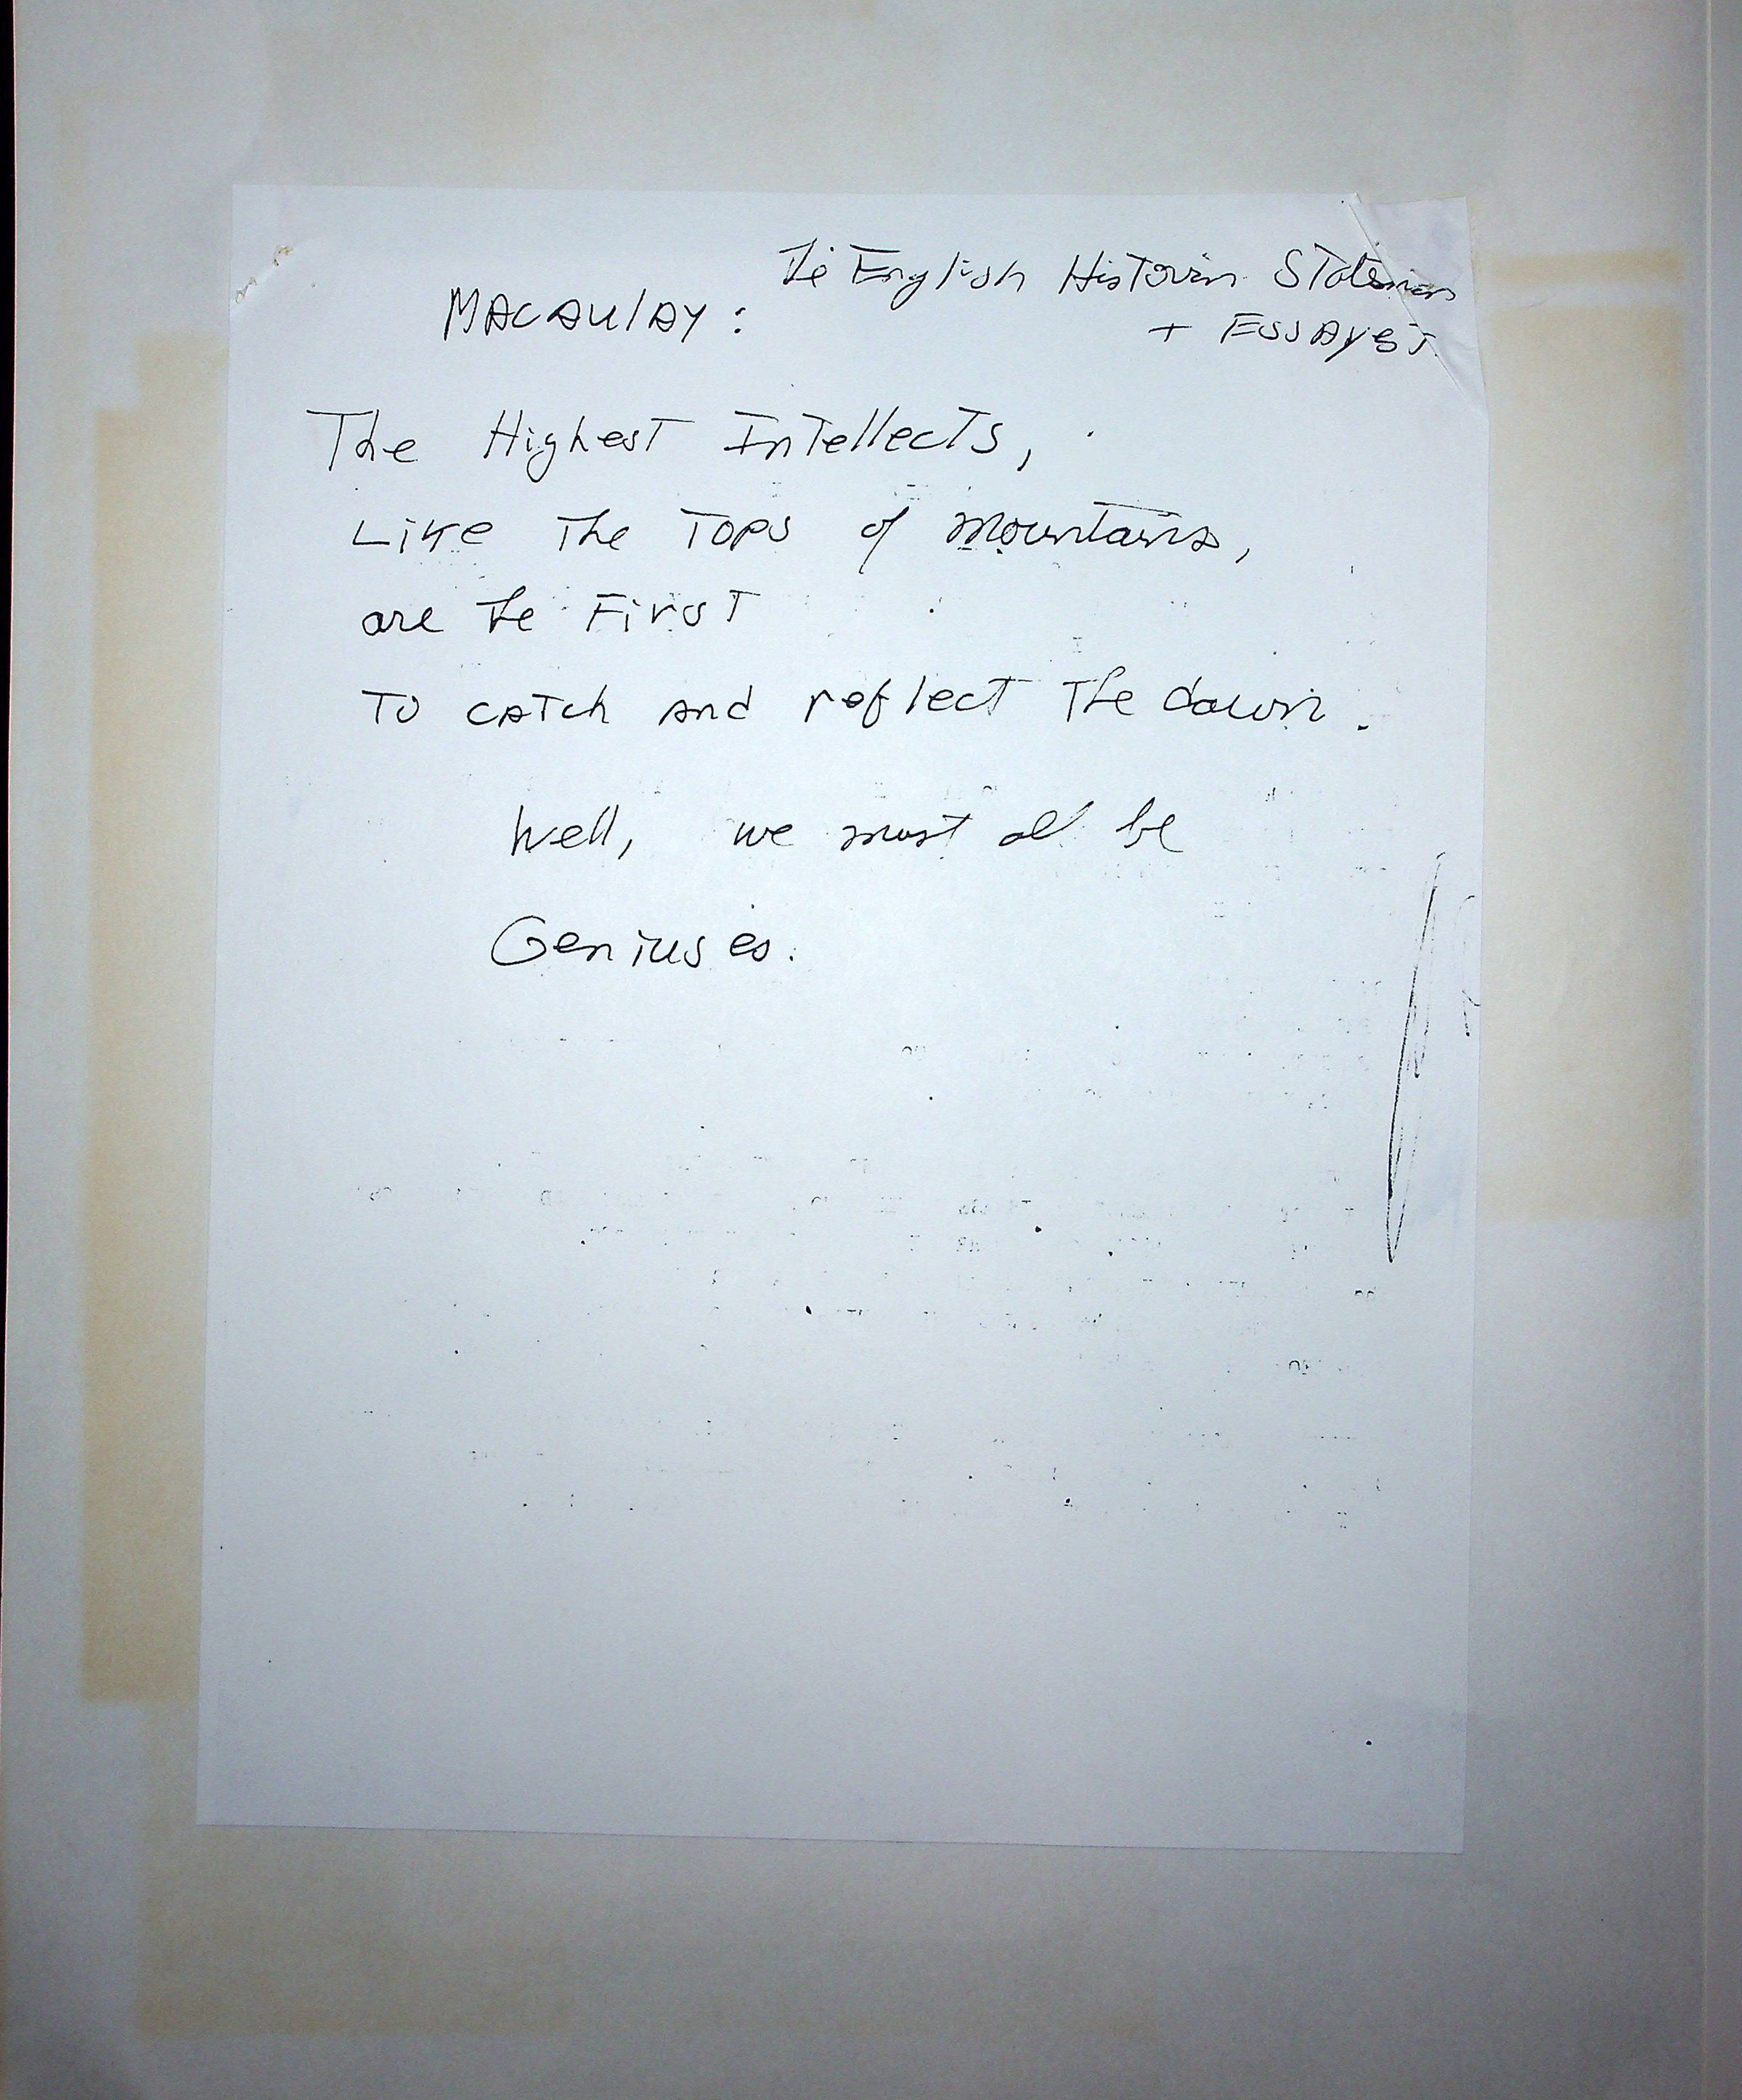 The English Historian Statesman
MACAULAY:
+ ESSAYEST.
The Highest Intellects,
Like The Tops of mountains,
are the First
To catch and reflect The dawn.
Well, we must all be
Geniuses.